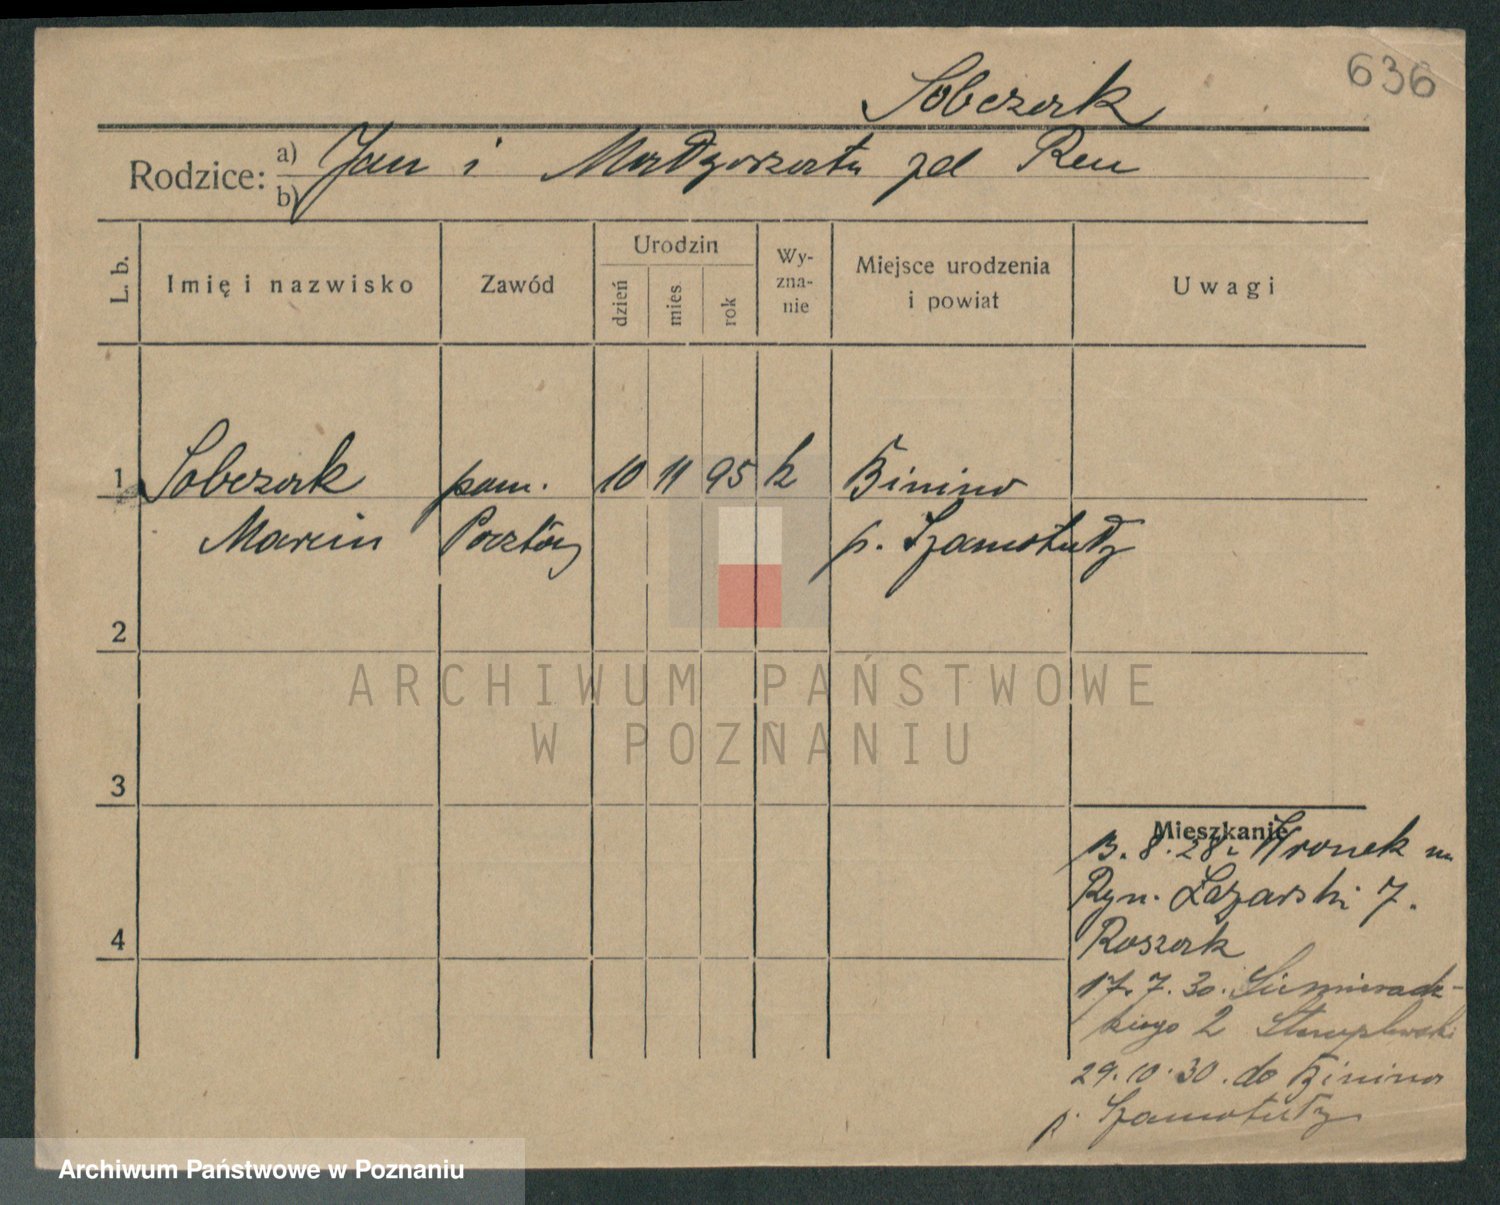 636
Sobczak
Rodzice: a) Jan i Małgorzata zd Ren
b)
L. b.
Imię i nazwisko
Zawód
Urodzin
dzień
mies
rok
Wy-
zna-
nie
Miejsce urodzenia
i powiat
Uwagi
1 Sobczak pom. 10 11 95 k Binino
Marcin Pocztów p. Szamotuły
2
3
4
Mieszkanie
13. 8. 28. Wronek m
Ryn. Łazarski 7.
Roszak
17. 7. 30. Siemiradz-
kiego 2
29. 10. 30. do Binino
p. Szamotuły
ARCHIWUM PAŃSTWOWE
W POZNANIU
Archiwum Państwowe w Poznaniu